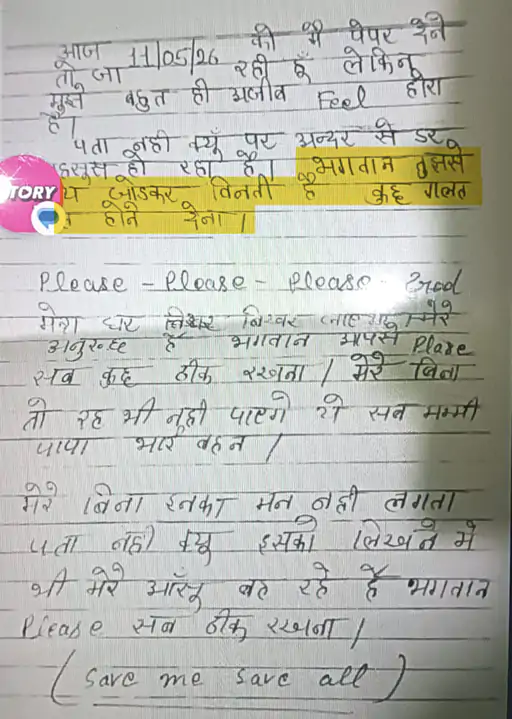 आज 11/05/26 को मैं पेपर देने
तो जा रही हूँ लेकिन
मुझे बहुत ही अजीब Feel होरा
है।
पता नही क्यूँ पर अन्दर से डर
हसुस हो रहा है। भगवान तुझसे
थ जोडकर विनती है कुछ गलत
होने देना।
TORY
Please - Please - Please - God
मेरा घर बिखर जाएगा मेरे
अनुरुध्द है भगवान आपसे Plase
सब कुछ ठीक रखना। मेरे बिना
तो रह भी नही पाएगे ये सब मम्मी
पापा भाई बहन।
मेरे बिना इनका मन नही लगता
पता नही क्यू इसको लिखने मे
भी मेरे आँसू बह रहे हैं भगवान
Please सब ठीक रखना।
(Save me save all)